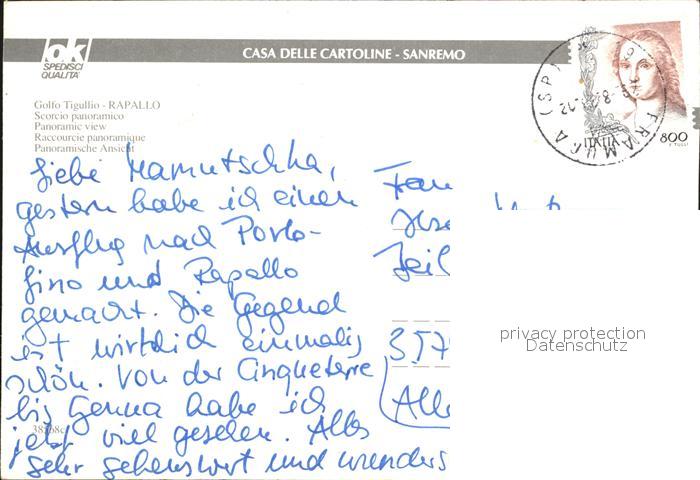 ok
SPEDISCI
QUALITA'
CASA DELLE CARTOLINE - SANREMO
Golfo Tigullio - RAPALLO
Scorcio panoramico
Panoramic view
Raccourcie panoramique
Panoramische Ansicht
800
FRAMURA (SP)
Liebe Mamutschka,
gestern habe ich einen
Ausflug nach Porto-
fino und Rapallo
gemacht. Die Gegend
ist wirklich einmalig
schön. Von der Cinqueterre
bis Genua habe ich
jetzt viel gesehen. Alles
sehr sehenswert und wunders
357
privacy protection
Datenschutz